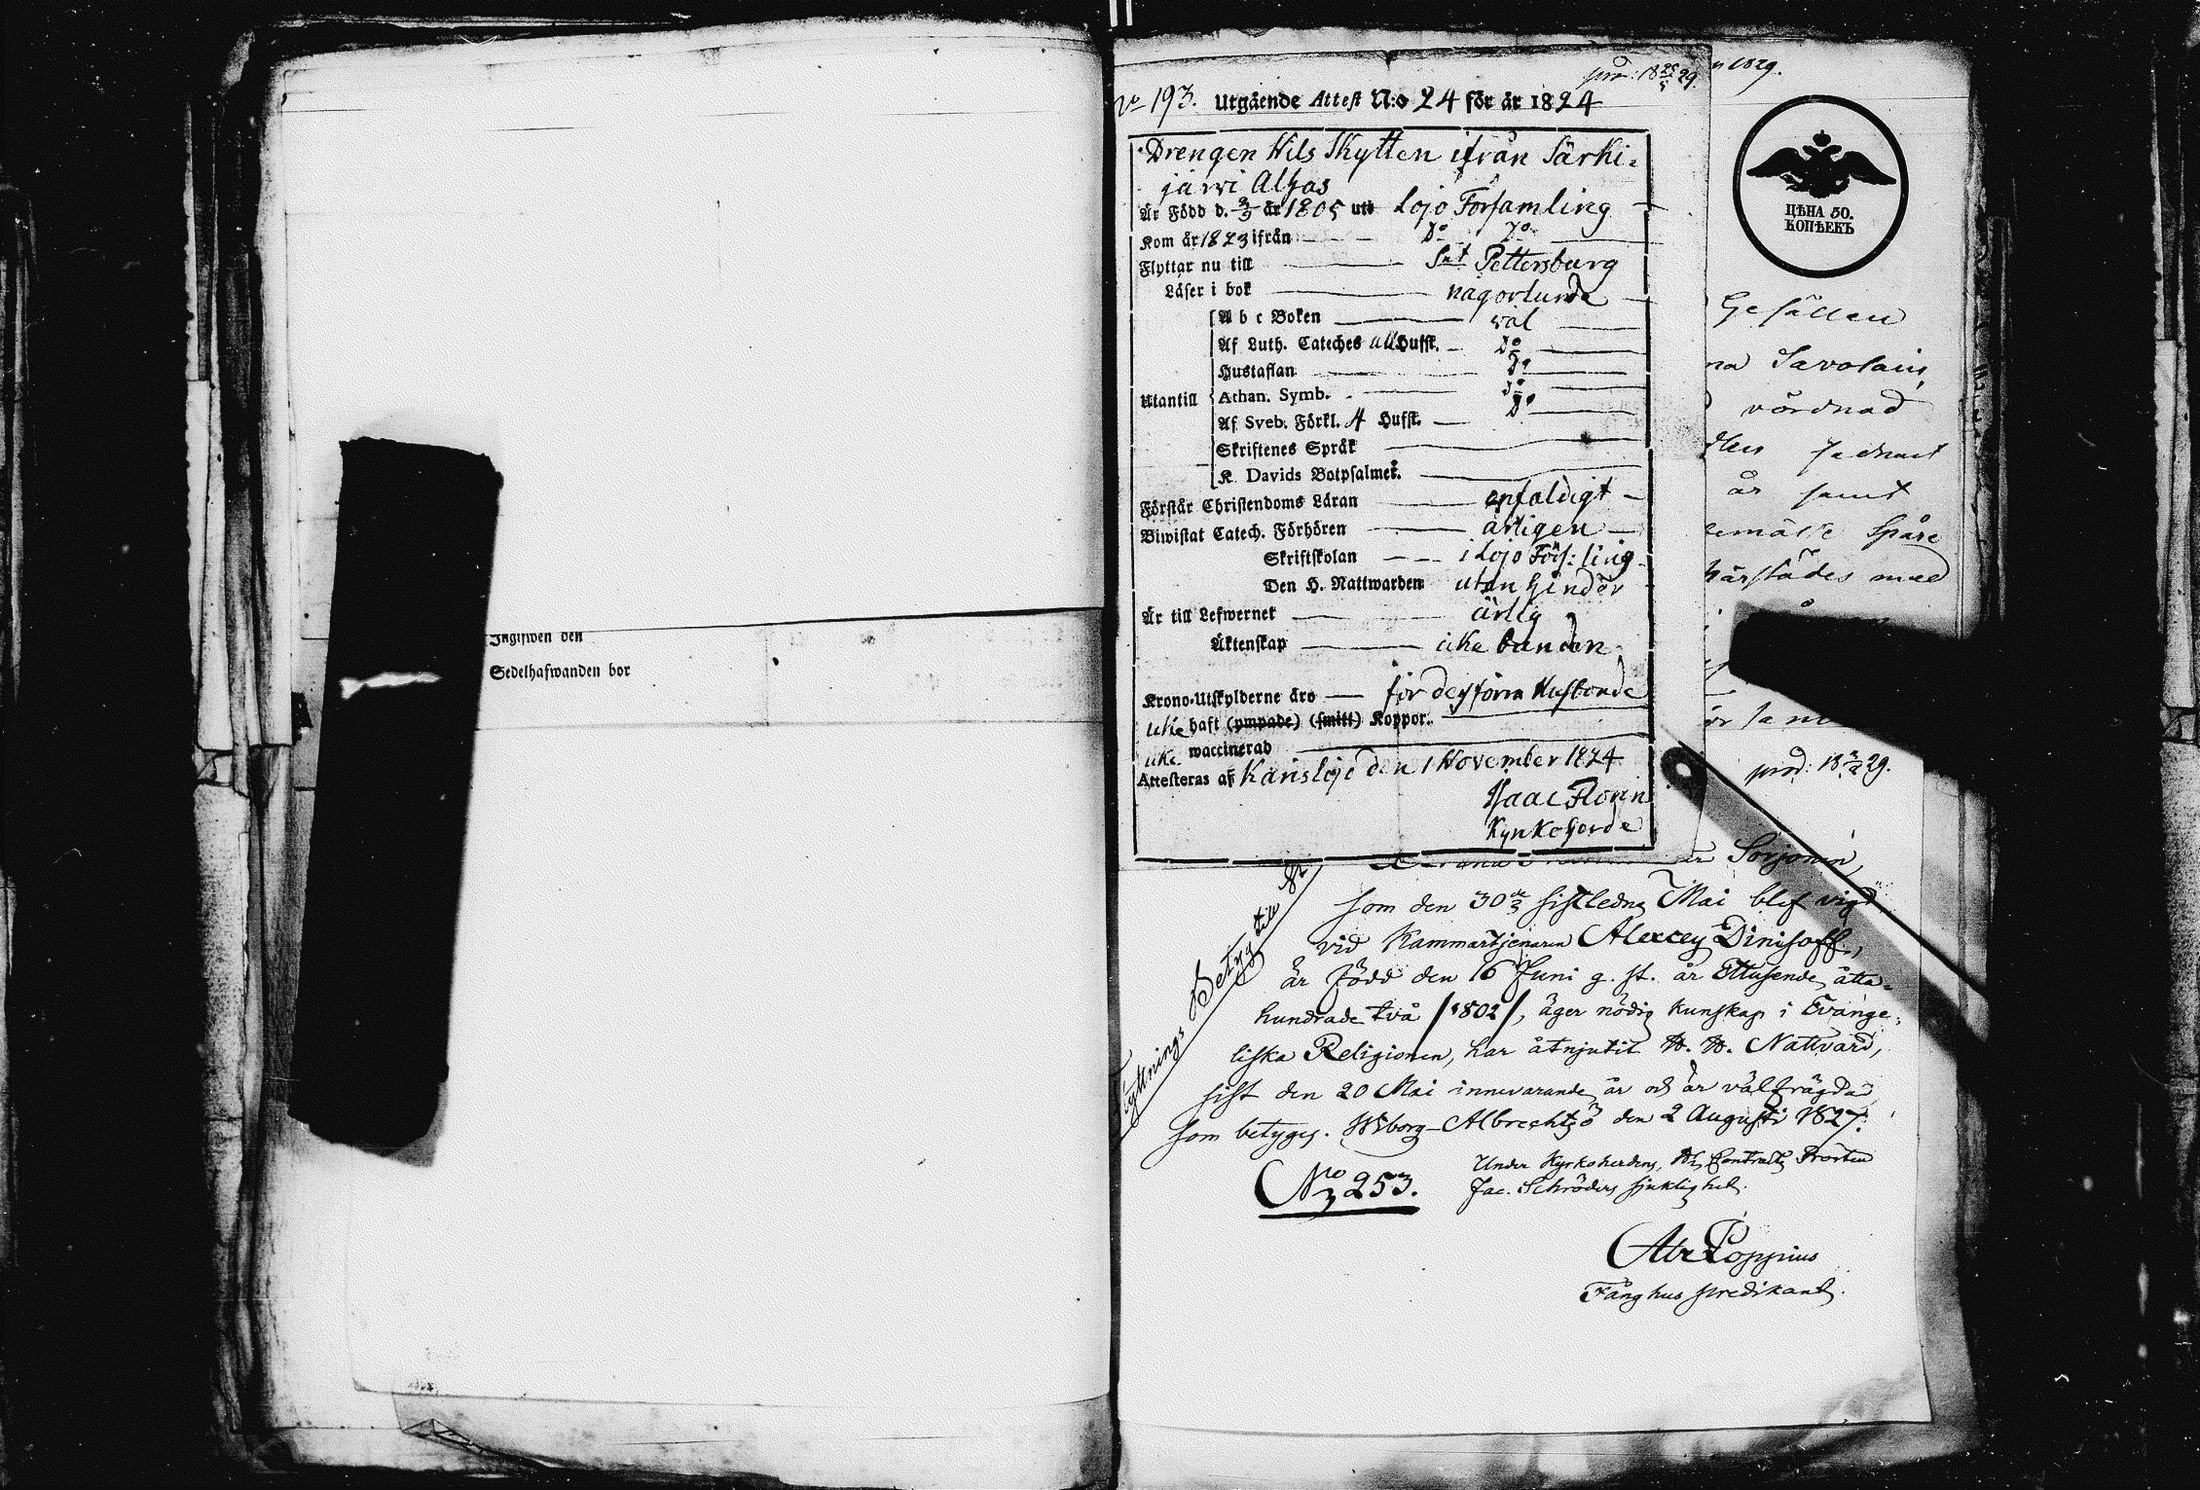 Ingifwen den
Sedelhafwanden bor
prod: 18 25/5 29.
No 193. Utgående Attest N:o 24 för år 1824
Drengen Nils Skytten ifrån Särki-
järwi Alhas
Är Född d. 3/3 år 1805 uti Lojo Församling
Kom år 1823 ifrån Do Do
Flyttar nu till Snt Pettersburg
Läser i bok någorlunda
Utantill
A b c Boken väl
Af Luth. Cateches all Hufst. Do
Hustaflan Do
Athan. Symb. Do
Af Sveb. Förkl. 4 Hufst. Do
Skriftenes Språk
K. Davids Botpsalmer.
Förstår Christendoms Läran enfaldigt
Biwistat Catech. Förhören årligen
Skriftskolan i Lojo Förs:ling
Den H. Nattwarden utan hinder
Är till Lefwernet ärlig
Äktenskap icke bunden
Krono-Utskylderne äro för dess förra Husbonde
icke haft (ympade) (smitt) Koppor.
icke waccinerad
Attesteras af Karislojo den 1 November 1824
Isaac Floren
Kyrkoherde
n 1829.
ЦѢНА 50.
КОПѢЕКЪ
Gesällen
na Savolain
vördnad
år samt
Spåre
härstädes med
prod: 18 2/2 29.
Flyttnings Betyg till St
Sorjonen,
som den 30de sistledne Mai blef vigd
vid Kammartjenaren Alexey Dinisoff,
är född den 16 Juni g. st. år Ettusende åtta-
hundrade två /1802/, äger nödig kunskap i Evange-
liska Religionen, har åtnjutit H. H. Nattvard,
sist den 20 Mai innevarande år och är välfrägdad
som betygas. Wiborg-Albrechtsö den 2 Augusti 1827.
No 253.
Under Kyrkoherdens, H. Contracts Prosten
Jac. Schröders sjuklighet.
Abr Poppius
Fånghus predikant.